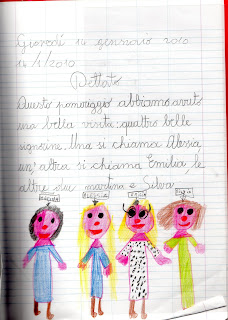 Giovedì 14 gennaio 2010
14/1/2010
Dettato
Questo pomeriggio abbiamo avuto
una bella visita: quattro belle
signorine. Una si chiama Alessia,
un'altra si chiama Emilia, le
altre due martina e Silvia